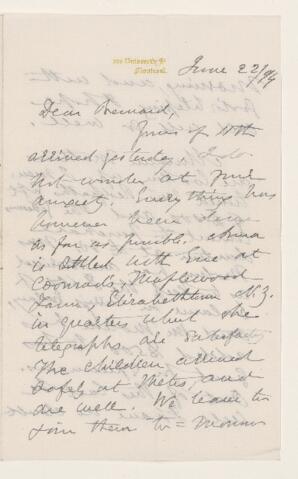 University St
Montreal.
June 22/94
Dear Bernard,
Yours of 11th
arrived yesterday. I do
not wonder at your
anxiety. Everything has
however been done
as far as possible. Anna
is settled with Eva at
Coonrads, Maplewood
Farm, Elizabethtown N.Y.
in quarters which she
telegraphs are satisfactory
The children arrived
safely at Metis, and
are well. We leave to
join them to-morrow